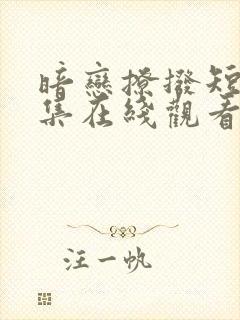 暗戀撩撥短
集在綫觀看
汪一帆